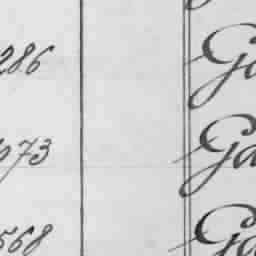 286 Ga
073 Ga
568 Ga